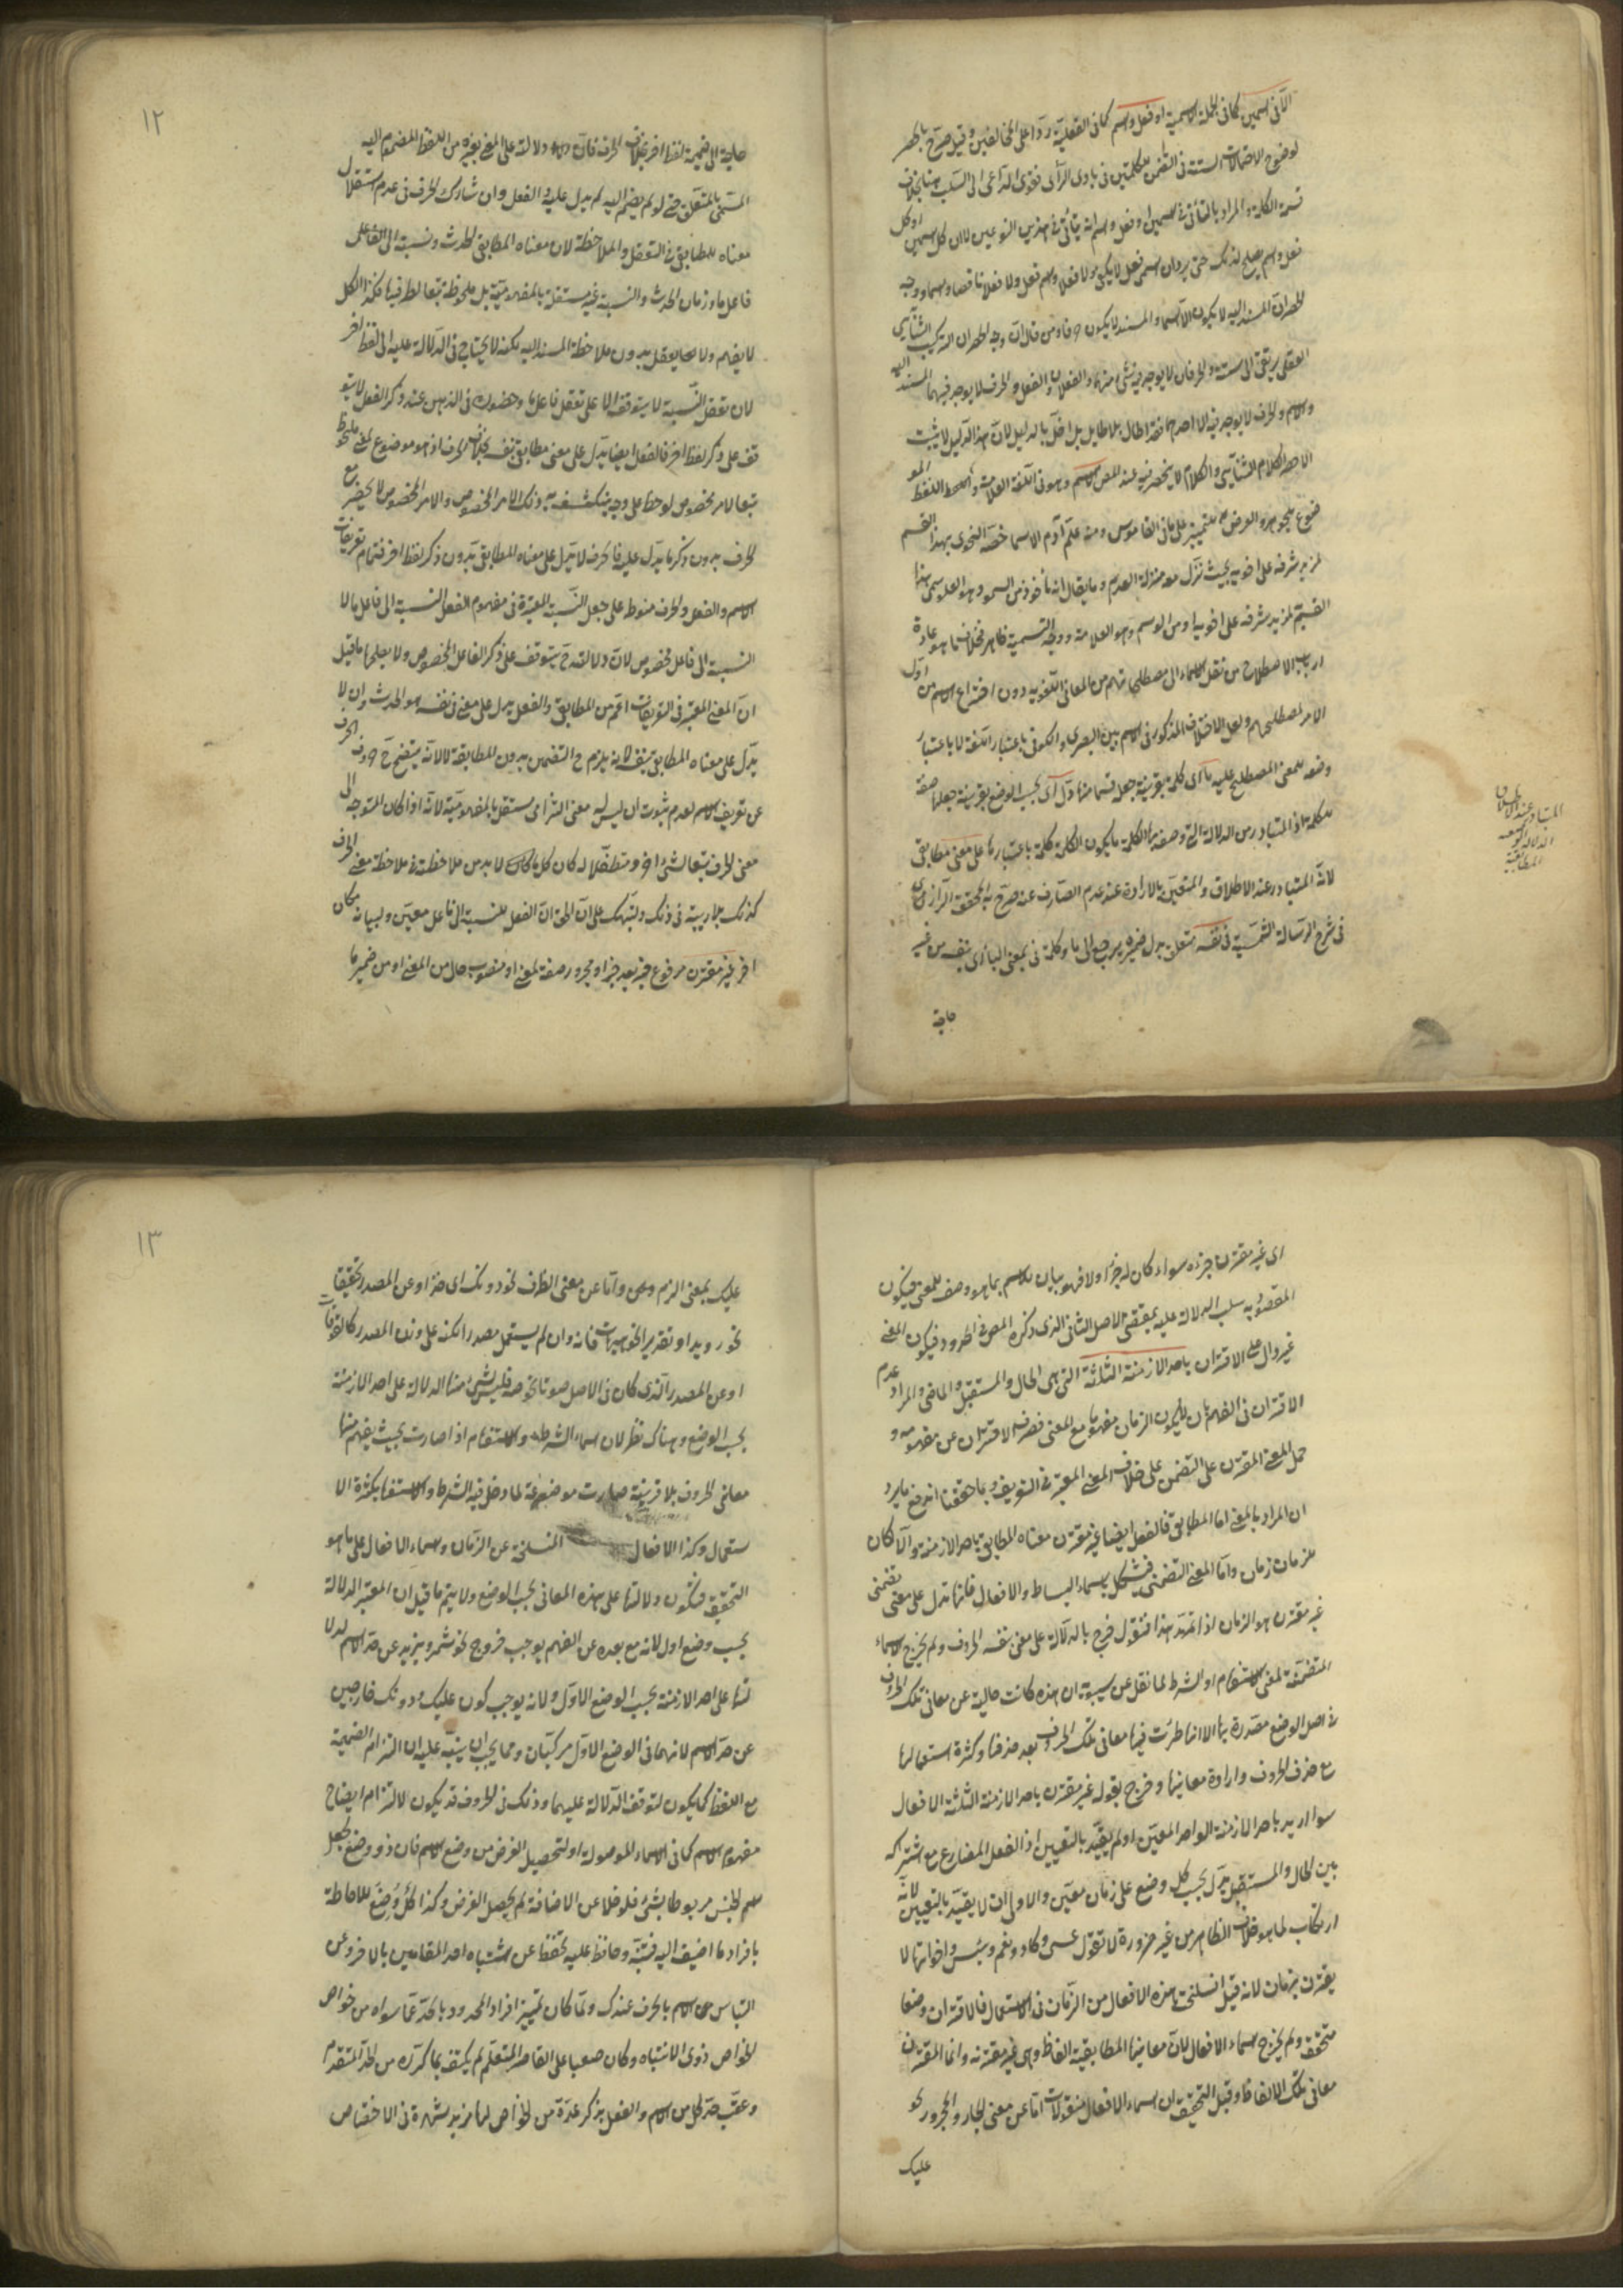 الا فى اسمين كما فى الجملة الاسمية او فعل واسم كما فى الفعلية ردا على المخالفين وقيل صرح بالحصر
لوضوح الاحتمالات الستة فى التضمن للكلمتين فى بادى الرأى فقوى الداعى الى السلب هنا بخلاف
قسمة الكلمة والمراد بالتأتى فى اسمين او فعل واسم انه يتأتى فى هذين النوعين لا ان كل اسمين او كل
فعل واسم يصلح لذلك حتى يرد ان اسمى فعل لا يكون كلاما ولا فعلا واسم فعل ولا فعلا ناقصا واسما ووجه
الحصر ان المسند اليه لا يكون الا اسما والمسند لا يكون حرفا ومن قال ان وجه الحصر ان التركيب الثنائى
العقلى يرتقى الى ستة والحرفان لا يوجد فيه شئ منهما والفعلان والفعل والحرف لا يوجد فيهما المسند اليه
والاسم والحرف لا يوجد فيه الا احدهما فقد اطال بلا طايل بل اخل بالدليل لان هذا الدليل لا يثبت
الا حصر الكلام الثنائى والكلام لا ينحصر فيه عند المص الاسم وهو فى اللغة العلامة واللفظ المو
ضوع للجوهر والعرض للتمييز على ما فى القاموس ومنه علم آدم الاسما خصه النحوى بهذا القسم
لمزيد شرفه على اخويه بحيث نزل معه منزلة العدم وما يقال انه مأخوذ من السمو وهو العلو سمى هذا
القسم لمزيد شرفه على اخويه او من الوسم وهو العلامة ووجه التسمية ظاهر فخلاف ما هو عادة
ارباب الاصطلاح من نقل الاسماء الى مصطلحاتهم من المعانى اللغوية دون اختراع الاسم من اول
الامر لمصطلحهم ولعل الاختلاف المذكور فى الاسم بين البصرى والكوفى باعتبار اللغة لا باعتبار
وضعه للمعنى المصطلح عليه ما اى كلمة بقرينة جعله قسما منها دل اى بحسب الوضع بقرينة جعلها صفة
للكلمة اذ المتبادر من الدلالة التى وصفت بها الكلمة ما يكون الكلمة كلمة باعتبارها على معنى مطابقى
لانه المتبادر عند الاطلاق والمتعين بالارادة عند عدم الصارف عنه صرح به المحقق الرازى
فى شرح الرسالة الشمسية فى نفسه متعلق بدل ضميره يرجع الى ما وكلمة فى بمعنى الباء اى بنفسه من غير
حاجة
المتبادر عند الاطلاق
الدلالة الوضعية
المطابقية
١٢
حاجة الى ضميمة لفظ اخر بخلاف الحرف فان له دلالة على المعنى بغيره من اللفظ المضموم اليه
المسمى بالمتعلق حتى لو لم يضم اليه لم يدل عليه والفعل وان شارك الحرف فى عدم استقلال
معناه المطابقى فى التعقل والملاحظة لان معناه المطابقى الحدث ونسبته الى الفاعل
فاعل ما وزمان الحدث والنسبة غير مستقلة بالمفهومية بل ملحوظة تبعا لطرفيها فكذا الكل
لا يفهم ولا يعقل بدون ملاحظة المسند اليه لكنه لا يحتاج فى الدلالة عليه الى لفظ اخر
لان تعقل النسبة لا يتوقف الا على تعقل فاعل ما وحضوره فى الذهن عند ذكر الفعل لا يتو
قف على ذكر لفظ اخر فالفعل ايضا يدل على معنى مطابقى بنفسه بخلاف الحرف اذ هو موضوع لمعنى ملحوظ
تبعا لامر مخصوص لوحظ على وجه ينكشف به ذلك الامر المخصوص والامر المخصوص لا يحضر مع
الحرف بدون ذكر ما يدل عليه فالحرف لا يدل على معناه المطابقى بدون ذكر لفظ اخر فتمام تعريفات
الاسم والفعل والحرف منوط على جعل النسبة المعتبرة فى مفهوم الفعل النسبة الى فاعل ما لا
النسبة الى فاعل مخصوص لان دلالته ح يتوقف على ذكر الفاعل المخصوص ولا يصلحها ما قيل
ان المعنى المعتبر فى التعريفات اعم من المطابقى والفعل يدل على معنى فى نفسه هو الحدث وان لا
يدل على معناه المطابقى بنفسه لانه يلزم ح التضمن بدون المطابقة لا لانه يتضح ح خروج الحرف
عن تعريف الاسم لعدم ثبوت ان ليس له معنى التزامى مستقل بالمفهومية لانه اذا كان المتوجه الى
معنى الحرف تبعا لشئ اخر ومتطفلا له كان كل ما كان لا بد من ملاحظته فى ملاحظة معنى الحرف
كذلك بلا ريبة فى ذلك ولينبهك على ان الحق ان الفعل للنسبة الى فاعل معين ولبيانه مكان
اخر غير مقترن مرفوع خبر بعد خبر او مجرور صفة لمعنى او منصوب حال من المعنى او من ضمير ما
اى غير مقترن جزءه سواء كان له جزء او لا فهو بيان للاسم بما هو وصف للمعنى فيكون
المقصود به سلب الدلالة عليه بمقتضى الاصل الثانى الذى ذكره المص فى الحدود فيكون المعنى
غير دال على الاقتران باحد الازمنة الثلثة التى هى الحال والمستقبل والماضى والمراد عدم
الاقتران فى الفهم بان لا يكون الزمان مفهوما مع المعنى فصرف الاقتران عن مفهومه و
حمل المعنى المقترن على التضمن على خلاف المعنى المعتبر فى التعريف وبما حققنا اندفع ما يرد
ان المراد بالمعنى اما المطابقى فالفعل ايضا غير مقترن معناه المطابقى باحد الازمنة والا لكان
للزمان زمان واما المعنى التضمنى فيشكل باسماء البسائط والافعال فانها تدل على معنى تضمنى
غير مقترن هو الزمان اذا تمهد هذا فنقول خرج بالدلالة على معنى بنفسه الحروف ولم يخرج الاسماء
المتضمنة لمعنى الاستفهام او الشرط لما نقل عن سيبويه ان هذه كانت خالية عن معانى تلك الحروف
فى اصل الوضع مصدرة بها الا انها طرئت فيها معانى تلك الحروف بعد حذفها وكثرة استعمالها
مع حذف الحروف وارادة معانيها وخرج بقوله غير مقترن باحد الازمنة الثلثة الافعال
سواء اريد باحد الازمنة الواحد المعين او لم يقيد بالتعيين اذ الفعل المضارع مع اشتراكه
بين الحال والمستقبل يدل بحسب كل وضع على زمان معين والاولى ان لا يقيد بالتعيين لانه
ارتكاب لما هو خلاف الظاهر من غير ضرورة لا تقول عسى وكاد ونعم وبئس واخواتها لا
يقترن بزمان لانه قيل انسلخت هذه الافعال من الزمان فى الاستعمال فالاقتران وضعا
متحقق ولم يخرج اسماء الافعال لان معانيها المطابقية الفاظ وهى غير مقترنه وانما المقترن
معانى تلك الالفاظ وقيل التحقيق ان اسماء الافعال منقولات اما عن معنى الجار والمجرور نحو
عليك
١٣
عليك بمعنى الزم وهى واما عن معنى الظرف نحو دونك اى خذ او عن المصدر تحقيقا
نحو رويد او تقديرا نحو هيهات فانه وان لم يستعمل مصدرا لكنه على وزن المصدر كالقوقاة
او عن المصدر الذى كان فى الاصل صوتا نحو صه فليس شئ منها الدلالة على احد الازمنة
بحسب الوضع وهناك نظر لان اسماء الشرط والاستفهام اذا صارت بحيث يفهم منها
معانى الحروف بلا قرينة صارت موضوعة لما دخل فيه الشرط والاستفهام بكثرة الا
ستعمال وكذا الافعال المنسلخة عن الزمان واسماء الافعال على ما هو
التحقيق فتكون دلالتها على هذه المعانى بحسب الوضع ولا يتم ما قيل ان المعتبر الدلالة
بحسب وضع اول لانه مع بعده عن الفهم يوجب خروج نحو شمر ويزيد عن حد الاسم لدلا
لتها على احد الازمنة بحسب الوضع الاول ولانه يوجب كون عليك ودونك خارجين
عن حد الاسم لانهما فى الوضع الاول مركبان ومما يجب ان ينبه عليه ان التزام الضميمة
مع اللفظ كما يكون لتوقف الدلالة عليها وذلك فى الحروف قد يكون لالتزام ايضاح
مفهوم الاسم كما فى الاسماء الموصولة او لتحصيل الغرض من وضع الاسم فان ذو وضع لجعل
اسم الجنس مربوطا بشئ فلو خلا عن الاضافة لم يحصل الغرض وكذا كل وضع للاحاطة
بافراد ما اضيف اليه فتنبه وحافظ عليه تحفظا عن اشتباه احد المقامين بالاخر وعن
التباس الاسم بالحرف عندك ولما كان تمييز افراد المحدود بالحد عما سواه من خواص
الخواص ذوى الانتباه وكان صعبا على القاصر المتعلم لم يكتف بما كرره من الحد المتقدم
وعقب حد كل من الاسم والفعل بذكر عدة من الخواص لها مزيد شهرة فى الاختصاص